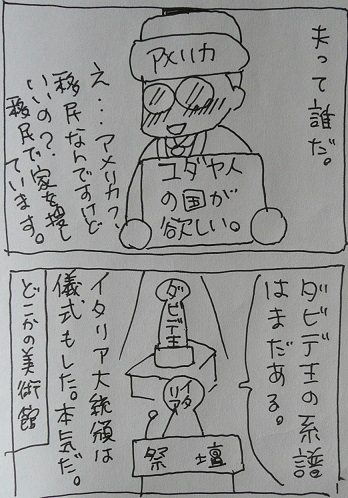 夫って誰だ。
アメリカ
え…アメリカ？、
移民なんですけど
いいの？
移民で家を捜し
ています。
ユダヤ人
の国が
欲しい。
ダビデ王の系譜
はまだある。
ダビデ王
イタ
リア
祭壇
イタリア大統領は
儀式もした。本気だ。
どこかの美術館